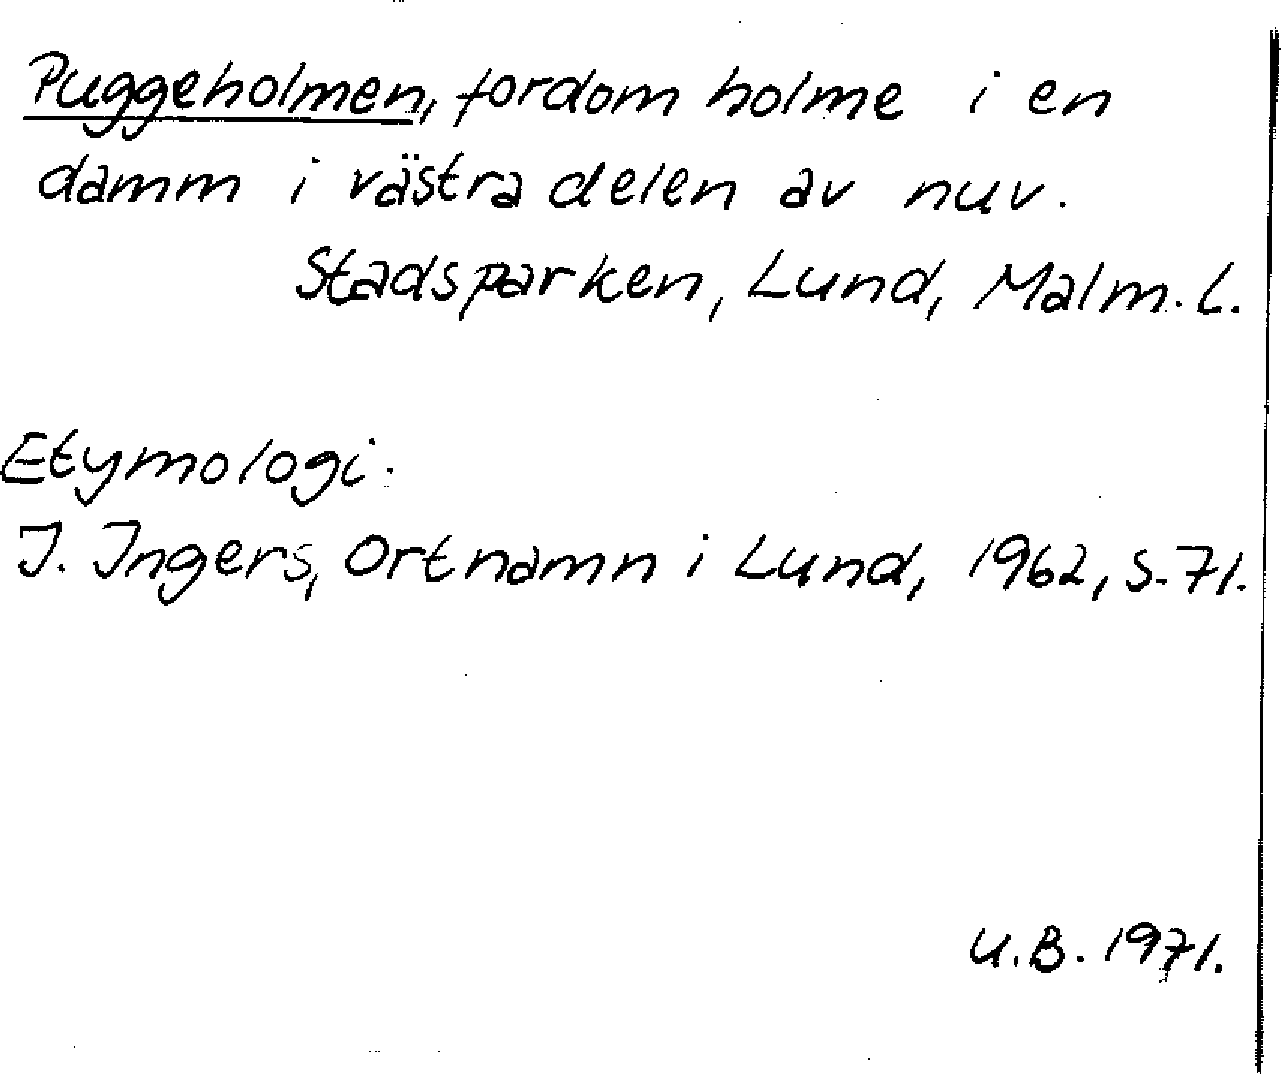 Puggeholmen, fordom holme i en
damm i västra delen av nuv.
Stadsparken, Lund, Malm. l.
Etymologi:
I. Ingers, Ortnamn i Lund, 1962, s. 71.
U.B. 1971.